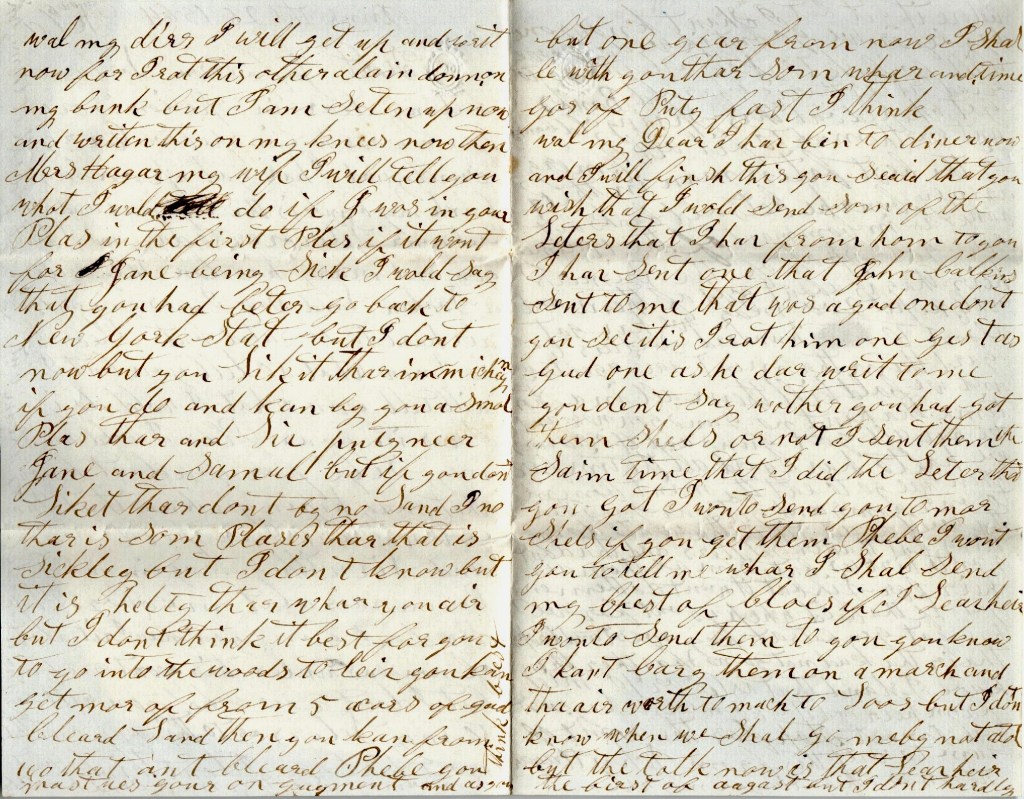 wal my dirr I will get up and writ
now for I rat this other alain down on
my bunk but I am seten up now
and written this on my knees now then
Mrs Hagar my wif I will tell you
what I wold do if I was in your
Plas in the first Plas if it wont
for Jane being sick I wold say
that you had beter go back to
New York Stat but I dont
now but you likit thar in michagn
if you do and kan by you a smal
Plas thar and liv puty neer
Jane and Samul but if you dont
liket thar dont by no land I no
thar is som Plases thar that is
sickley but I dont know but
it is helty thar whar you air
but I dont think it best for you
to go into the woods to leir you kan
get mor of from 5 acars of gud
cleard land then you kan from
100 that aint cleard Phebe you
must ues your on gugment and as you
think best
but one year from now I shal
be with you thar som whar and time
gos of Puty fast I think
wal my Dear I hav bin to diner now
and I will finish this you seaid that you
wish that I wold send som of the
leters that I hav from hom to you
I hav sent one that John Calkins
sent to me that was a gud one dont
you see it is I rot him one gest as
gud one as he dar writ to me
you dent say wother you had got
them shels or not I sent them the
saim time that I did the leter that
you got I wont to send you to mor
shels if you get them Phebe I wont
you to tell me whar I shal send
my chest of cloes if I leav heir
I wont to send them to you you know
I kant cary them on a march and
tha air worth to much to loos but I dont
know when we shal go meby not atol
but the talk now is that leav heir
the first of august but I dont hardley